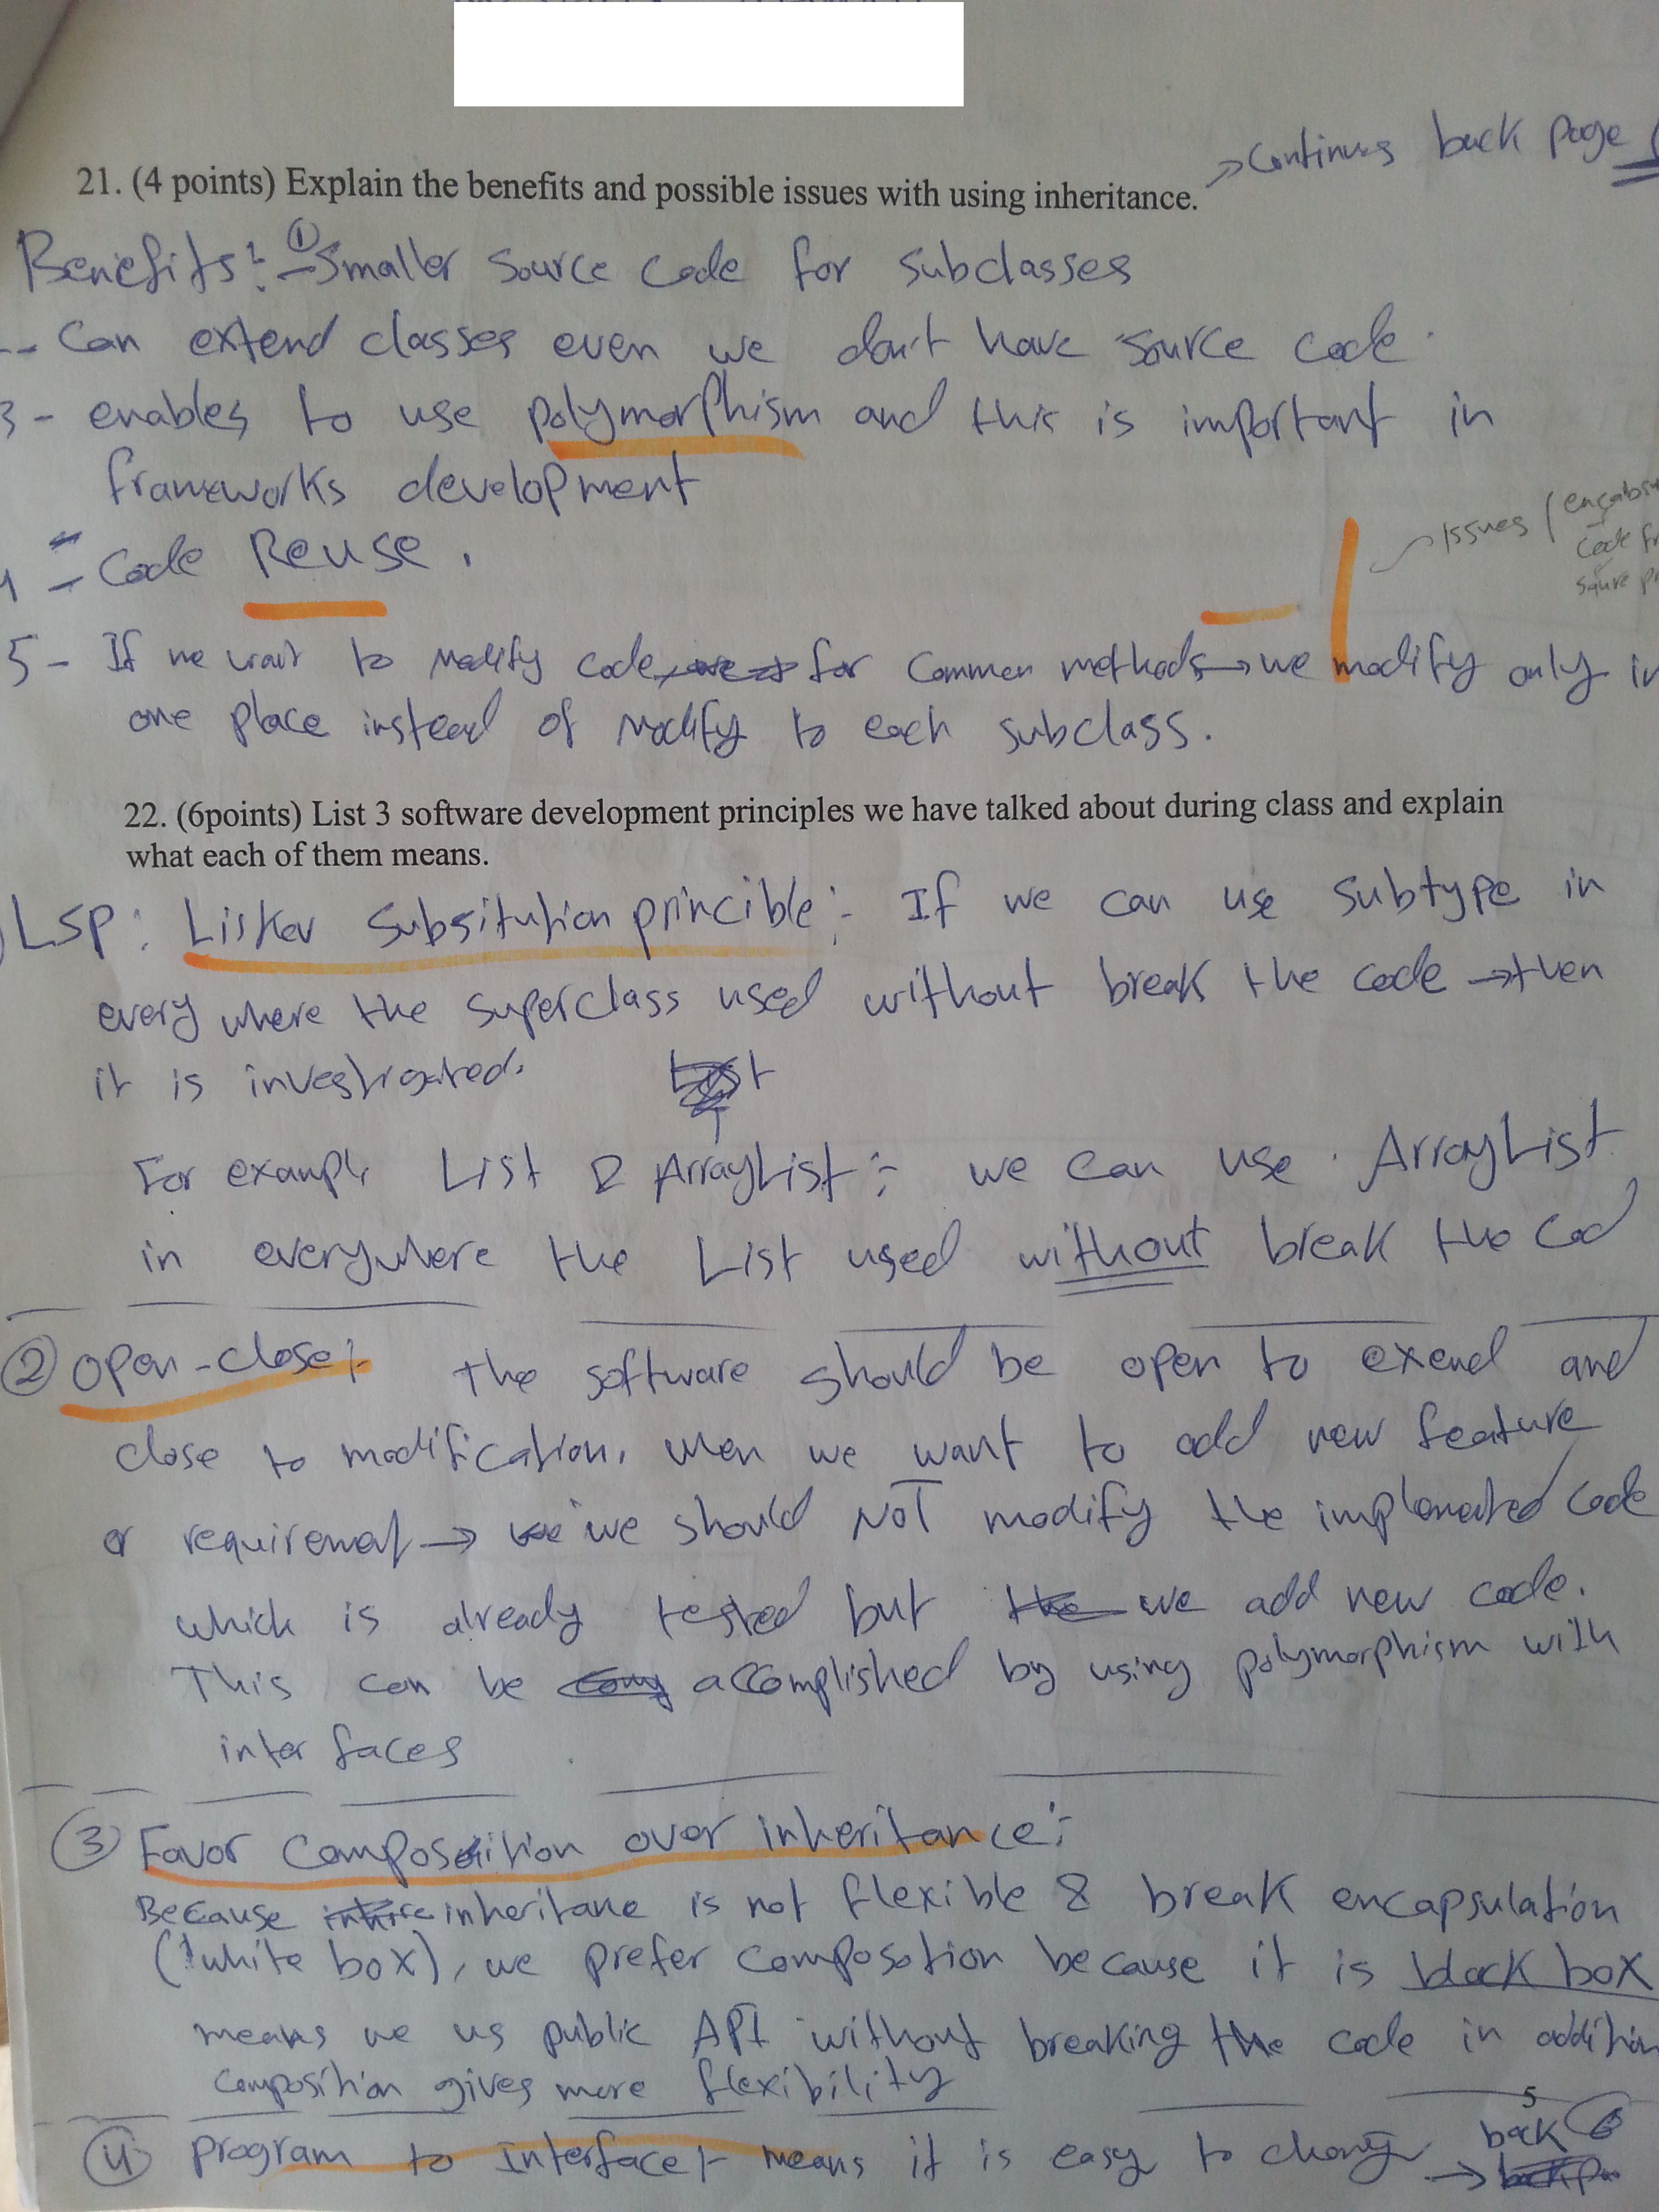 → Continues back page
21. (4 points) Explain the benefits and possible issues with using inheritance.
Benefits: ① - Smaller source code for subclasses
-- Can extend classes even we don't have source code.
3 - enables to use polymorphism and this is important in
frameworks development
4 - Code Reuse.
Issues
Code
5 - If we want to modify code for common methods → we modify only in
one place instead of modify to each subclass.
22. (6points) List 3 software development principles we have talked about during class and explain
what each of them means.
LSP: Liskov Subsitution princible:- If we can use subtype in
every where the superclass used without break the code → then
it is investigated.
For example List & ArrayList :- we can use ArrayList
in everywhere the List used without break the Cod
② open-close:- the software should be open to exend and
close to modification. when we want to add new feature
or requirement → we should NOT modify the implemented code
which is already tested but we add new code.
This can be accomplished by using polymorphism with
interfaces
③ Favor Composition over inheritance:-
Because inheritane is not flexible & break encapsulation
(white box), we prefer composotion because it is black box
means we us public API without breaking the code in addition
composition gives more flexibility
5
④ program to Interface:- means it is easy to change → back